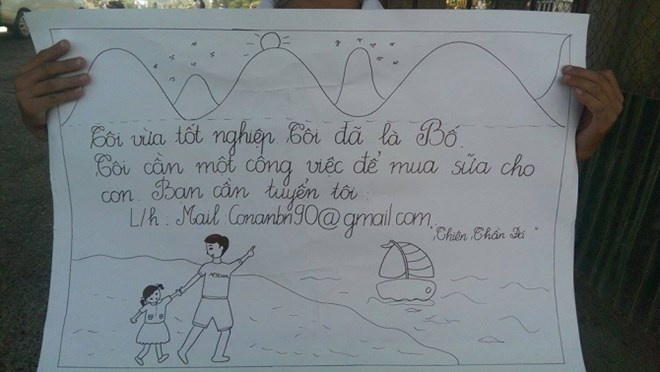 Tôi vừa tốt nghiệp Tôi đã là Bố.
Tôi cần một công việc để mua sữa cho
con. Bạn cần tuyển tôi.
L/h : Mail Conanbn90@gmail.com.
"Thiên Thần Đá"